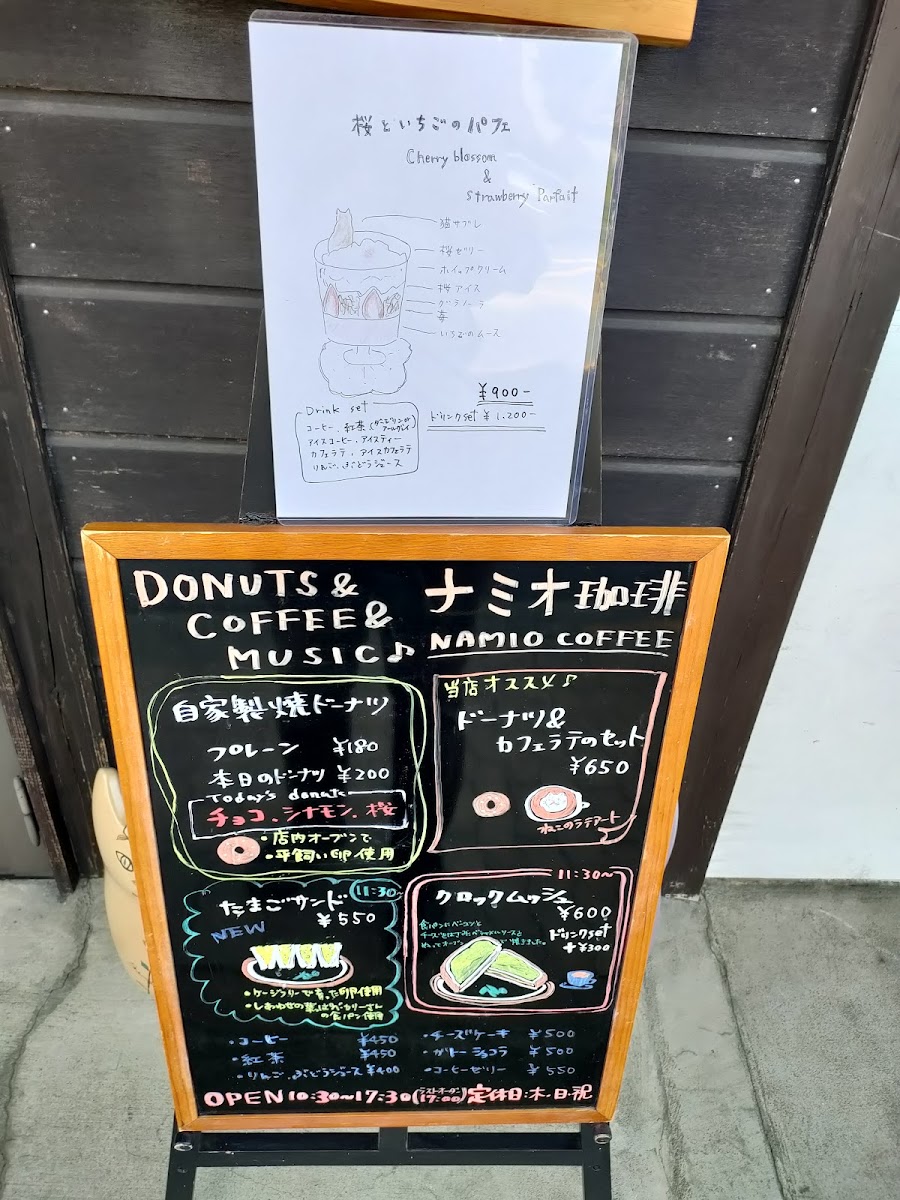 桜といちごのパフェ
Cherry blossom
&
Strawberry Parfait
猫サブレ
桜ゼリー
ホイップクリーム
桜アイス
グラノーラ
苺
いちごのムース
¥900-
ドリンクset ¥1,200-
Drink set
コーヒー、紅茶(ダージリンorアールグレイ)
アイスコーヒー、アイスティー
カフェラテ、アイスカフェラテ
りんご、ぶどうジュース
DONUTS&
COFFEE&
MUSIC♪
ナミオ珈琲
NAMIO COFFEE
自家製焼ドーナツ
プレーン ¥180
本日のドーナツ ¥200
Today's donuts
チョコ、シナモン、桜
・店内オーブンで
・平飼い卵使用
当店オススメ♪
ドーナツ&
カフェラテのセット
¥650
ねこのラテアート
11:30~
たまごサンド
¥550
NEW
・ケージフリーで育った卵使用
・しあわせの葉っぱベーカリーさん
の食パン使用
11:30~
クロックムッシュ
¥600
ドリンクset
+¥300
食パンにベーコンと
・コーヒー ¥450
・紅茶 ¥450
・りんご、ぶどうジュース ¥400
・チーズケーキ ¥500
・ガトーショコラ ¥500
・コーヒーゼリー ¥550
OPEN 10:30~17:30(ラストオーダー17:00)定休日:木・日・祝